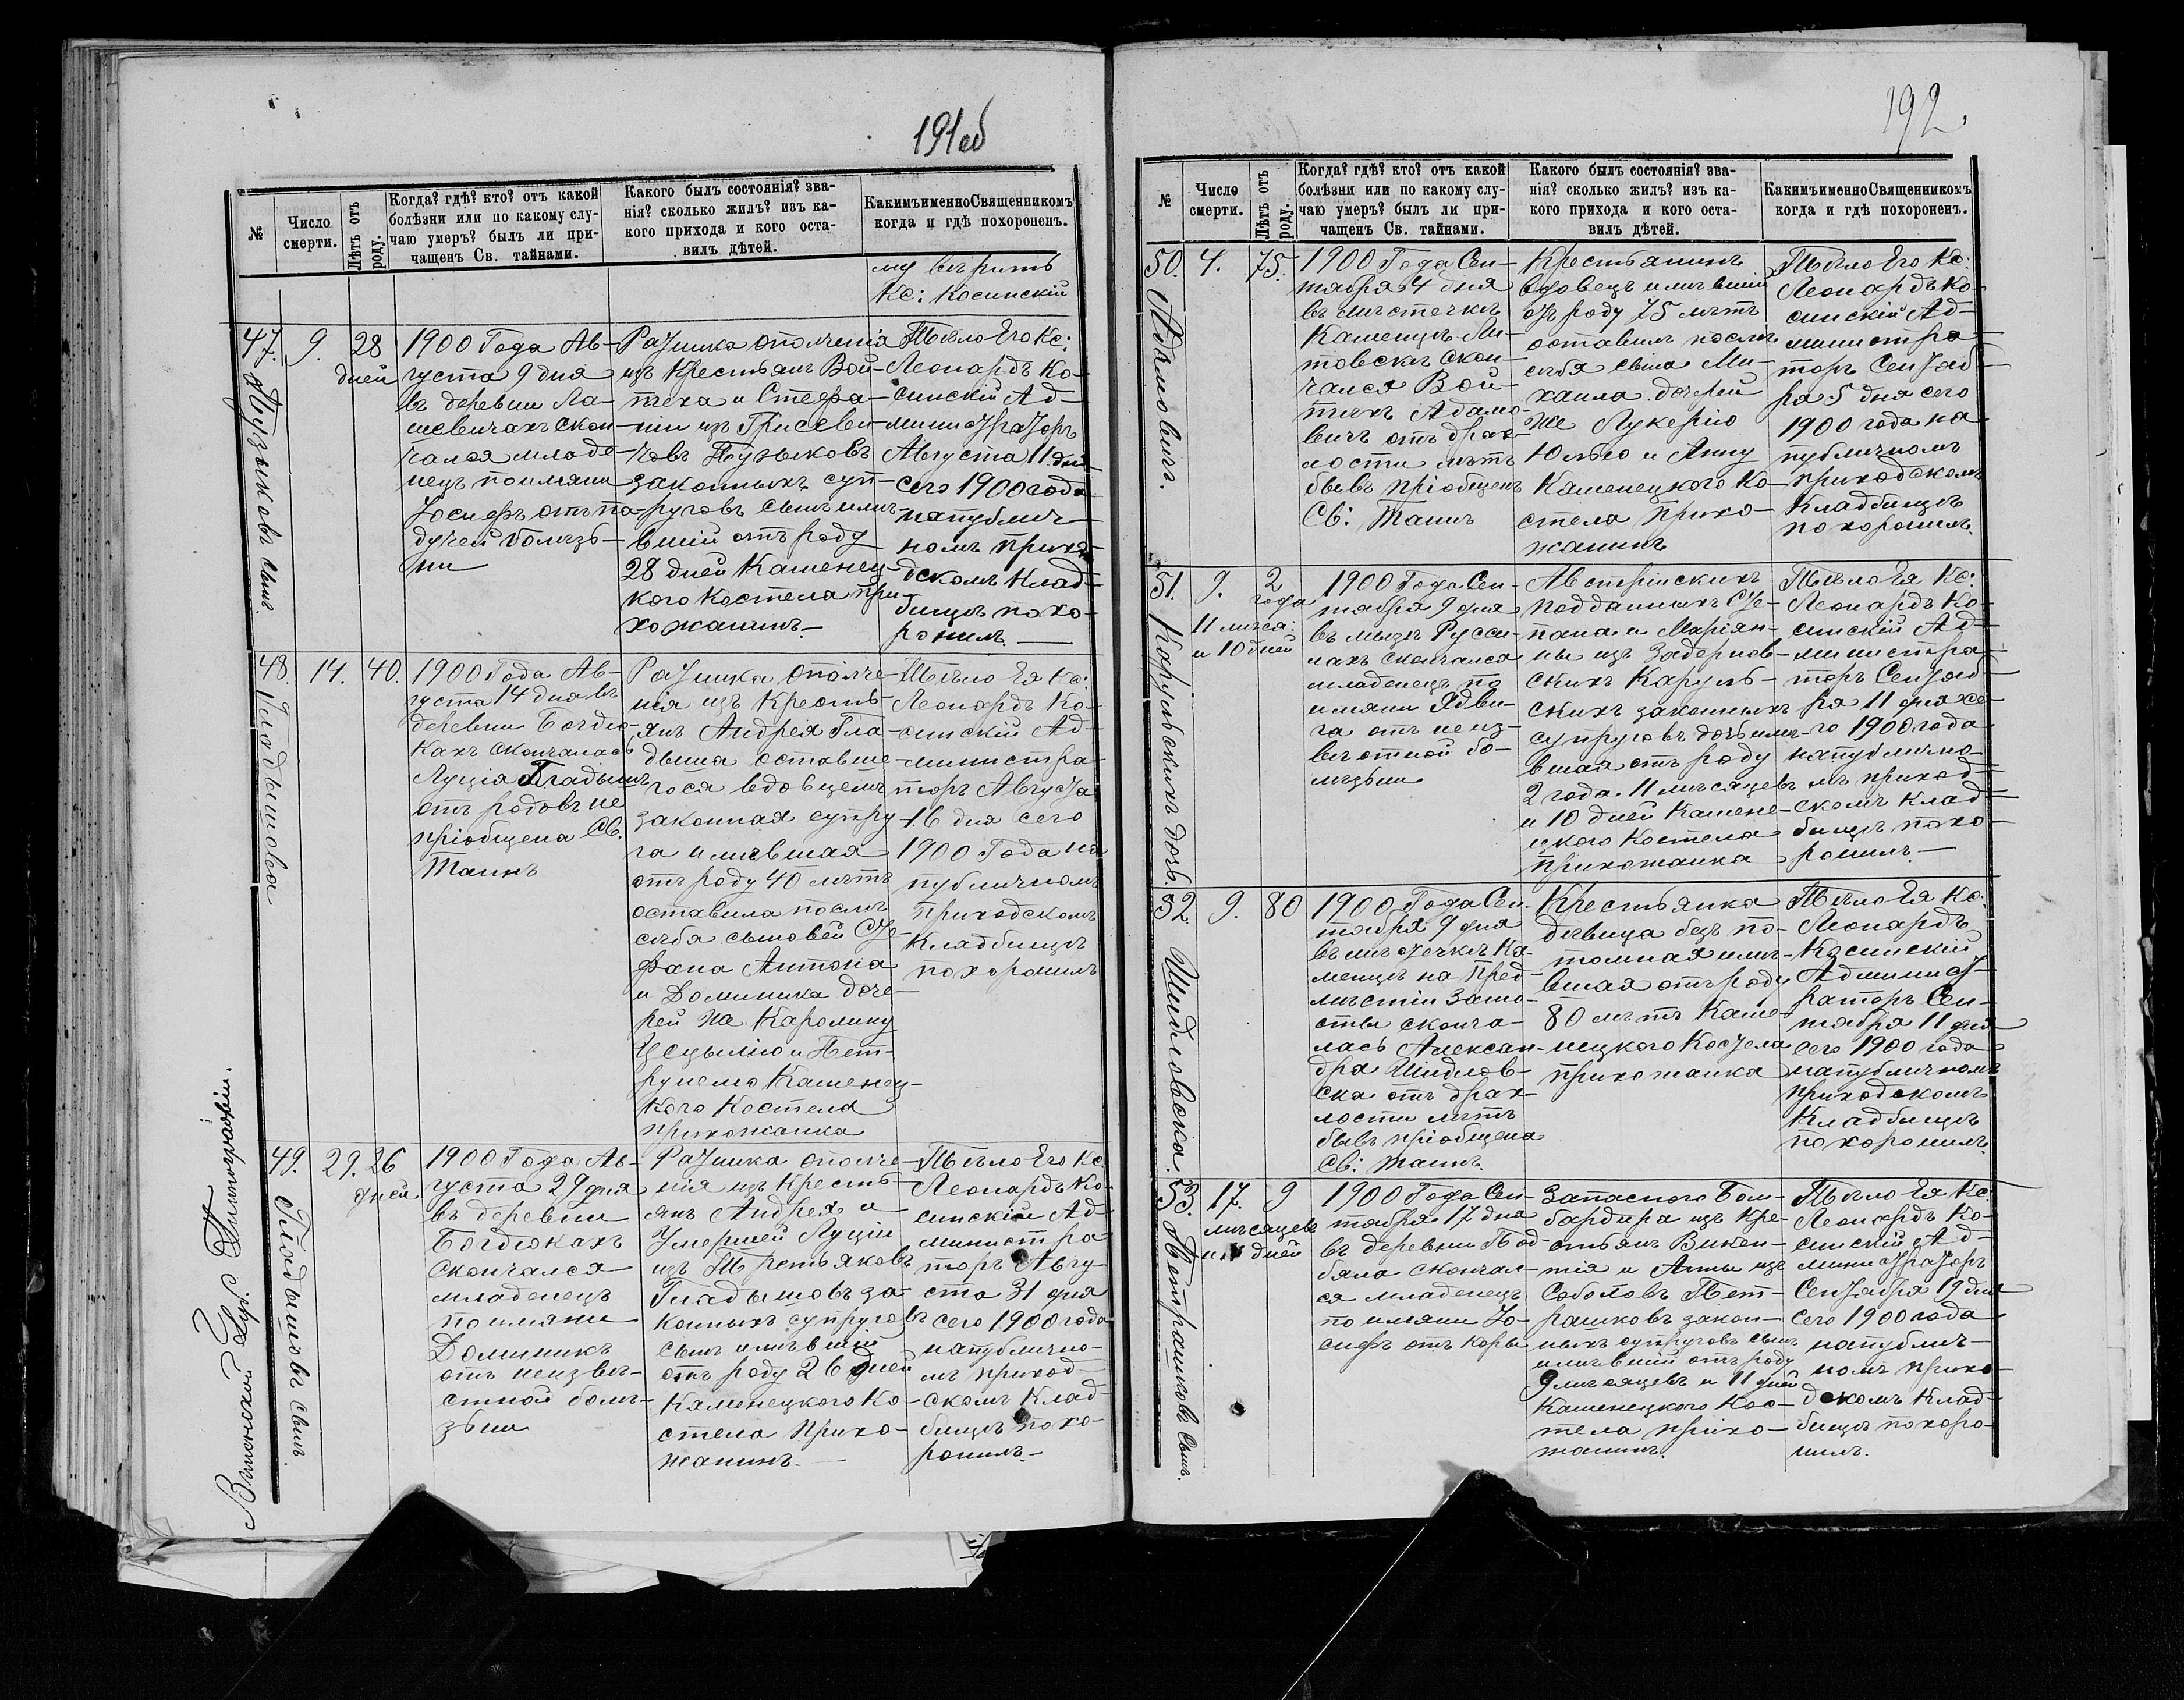 191об
№
Число смерти.
Лѣтъ отъ роду.
Когда? гдѣ? кто? отъ какой
болѣзни или по какому слу-
чаю умеръ? былъ ли при-
чащенъ Св. тайнами.
Какого былъ состоянія? зва-
нія? сколько жилъ? изъ ка-
кого прихода и кого оста-
вилъ дѣтей.
Какимъ именно Священникомъ
когда и гдѣ похороненъ.
Кс: Косинскій
47.
Пузыковъ сынъ.
9.
28
дней
1900 Года Ав-
густа 9 дня
въ деревни Ла-
шевичахъ скон-
чался младе-
нецъ поимяни
Іосифъ отъ па-
дучей болѣз-
ни
Ратника ополченія
изъ Крестьянъ Вой-
тѣха и Стефа-
ніи изъ Грисеви-
човъ Пузыковъ
законныхъ суп-
руговъ сынъ имѣ-
вшій отъ роду
28 дней Каменец-
кого Костела при-
хожанинъ
Тѣло Его Кс:
Леонардъ Ко-
синскій Ад-
министраторъ
Августа 11 дня
сего 1900 года
на публич-
номъ прихо-
дскомъ Клад-
бищѣ похо-
ронилъ
48.
Гладышова
14.
40.
1900 Года Ав-
густа 14 дня въ
деревни Богдю-
кахъ скончалась
Луція Гладышъ
отъ родовъ не
пріобщена Св.
Таинъ
Ратника Ополче-
нія изъ Кресть-
янъ Андрея Гла-
дыша оставше-
гося вдовцемъ
законная супру-
га имѣвшая
отъ роду 40 лѣтъ
оставила послѣ
себя сыновей Сте-
фана Антона
и Доминика доче-
рей же Каролину
Цецылію и Пет-
рунелю Каменец-
кого Костела
прихожанка
Тѣло Ея Кс:
Леонардъ Ко-
синскій Ад-
министра-
торъ Августа
16 дня сего
1900 Года на
публичномъ
приходскомъ
Кладбищѣ
похоронилъ
49.
Гладышовъ сынъ
29.
26
дней.
1900 Года Ав-
густа 29 дня
въ деревни
Богдюкахъ
скончался
младенецъ
поимяни
Доминикъ
отъ неизвѣ-
стной болѣ-
зни
Ратника ополче-
нія изъ кресть-
янъ Андрея и
Умершей Луціи
изъ Третьяковъ
Гладышовъ за-
конныхъ супруговъ
сынъ имѣвшій
отъ роду 26 дней
Каменецкого Ко-
стела Прихо-
жанинъ.
Тѣло Его Кс.
Леонардъ Ко-
синскій Ад-
министра
торъ Авгу-
ста 31 дня
сего 1900 года
на публично-
мъ приход-
скомъ Клад-
бищѣ похо-
ронилъ
Виленской Губ. Типографіи.
192.
№
Число смерти.
Лѣтъ отъ роду.
Когда? гдѣ? кто? отъ какой
болѣзни или по какому слу-
чаю умеръ? былъ ли при-
чащенъ Св. тайнами.
Какого былъ состоянія? зва-
нія? сколько жилъ? изъ ка-
кого прихода и кого оста-
вилъ дѣтей.
Какимъ именно Священникомъ
когда и гдѣ похороненъ.
50.
Адамовичъ.
4.
75.
1900 Года Сен-
тября 4 дня
въ мѣстечкѣ
Каменцѣ Ли-
товскѣ скон-
чался Вой-
тѣхъ Адамо-
вичъ отъ дрях-
лости лѣтъ
бывъ пріобщенъ
Св: Таинъ
Крестьянинъ
вдовецъ имѣвшій
отъ роду 75 лѣтъ
оставилъ послѣ
себя сына Ми-
хаила дочерей
же Лукерію
Юлію и Анну
Каменецкого Ко-
стела Прихо-
жанинъ
Тѣло Его Кс:
Леонардъ Ко-
синскій Ад-
министра-
торъ Сентяб-
ря 5 дня сего
1900 года на
публичномъ
приходскомъ
Кладбищѣ
похоронилъ
51.
Карульскихъ дочь.
9.
2
года
11 мѣся:
и 10 дней
1900 Года Сен-
тября 9 дня
въ мызѣ Русси-
лахъ скончался
младенецъ по
имяни Ядви-
га отъ неиз-
вѣстной бо-
лѣзни
Австрійскихъ
подданныхъ Сте-
пана и Маріян-
ны изъ Задернов-
скихъ Каруль-
скихъ законныхъ
супруговъ дочь имѣ-
вшая отъ роду
2 года 11 мѣсяцевъ
и 10 дней Камене-
цкого Костела
прихожанка
Тѣло Ея Кс:
Леонардъ Ко-
синскій Ад-
министра-
торъ Сентяб-
ря 11 дня се-
го 1900 года
на публично-
мъ приход-
скомъ Клад-
бищѣ похо-
ронилъ
52
Шидловска.
9.
80
1900 Года Сен-
тября 9 дня
въ мѣстечкѣ Ка-
менцѣ на Пред-
мѣстіи Замо-
сты сконча-
лась Алексан-
дра Шидлов-
ска отъ дрях-
лости лѣтъ
бывъ пріобщена
Св: Таинъ.
Крестьянка
дѣвица без по-
томная имѣ-
вшая отъ роду
80 лѣтъ Каме-
нецкого Костела
прихожанка
Тѣло Ея Кс.
Леонардъ
Косинскій
Админист-
раторъ Сен-
тября 11 дня
сего 1900 года
на публичномъ
приходскомъ
Кладбищѣ
похоронилъ.
53.
Петрашковъ сынъ.
17.
9
мѣсяцевъ
и 11 дней
1900 Года Сен-
тября 17 дня
въ деревни Под-
бяла скончал-
ся младенецъ
по имяни Іо-
сифъ отъ коры
Запасного Бом-
бардира изъ Кре-
стьянъ Викен-
тія и Анны изъ
Соболовъ Пет-
рашковъ закон-
ныхъ супруговъ сынъ
имѣвшій отъ роду
9 мѣсяцевъ и 11 дней
Каменецкого Кос-
тела прихо-
жанинъ.
Тѣло Ея Кс:
Леонардъ Ко-
синскій Ад-
министраторъ
Сентября 19 дня
сего 1900 года
на публич-
номъ прихо-
дскомъ Клад-
бищѣ похоро-
нилъ.